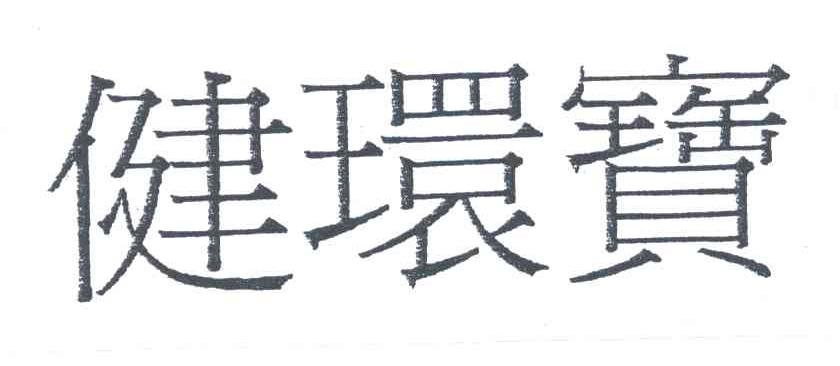 健環寶